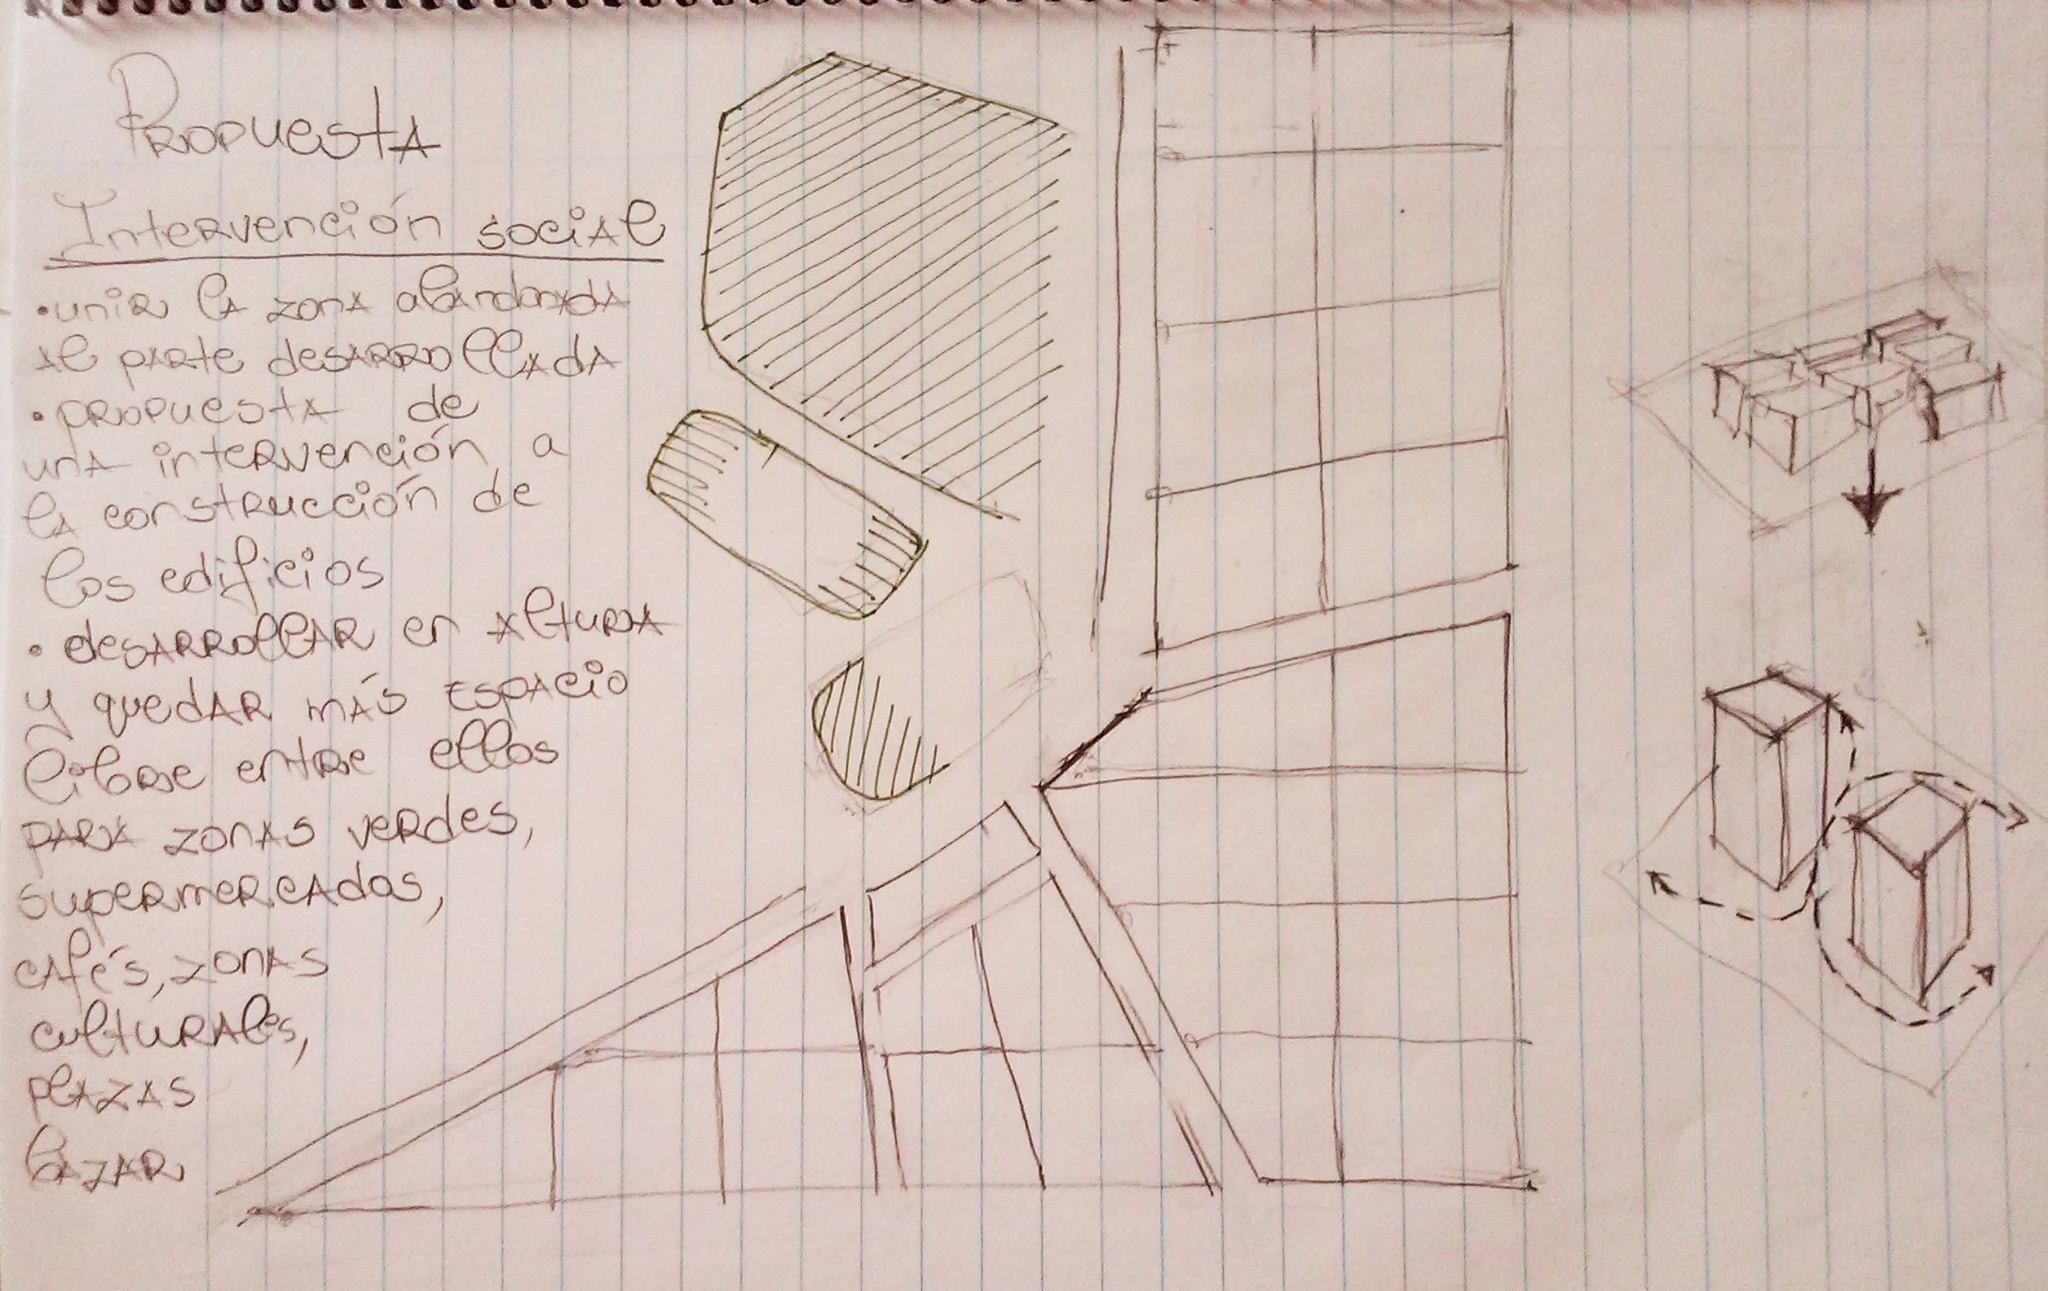 Propuesta
Intervención social
• unir la zona abandonada
al parte desarrollada
• propuesta de
una intervención a
la construcción de
los edificios
• desarrollar en altura
y quedar más espacio
libre entre ellos
para zonas verdes,
supermercados,
cafés, zonas
culturales,
plazas
bazar